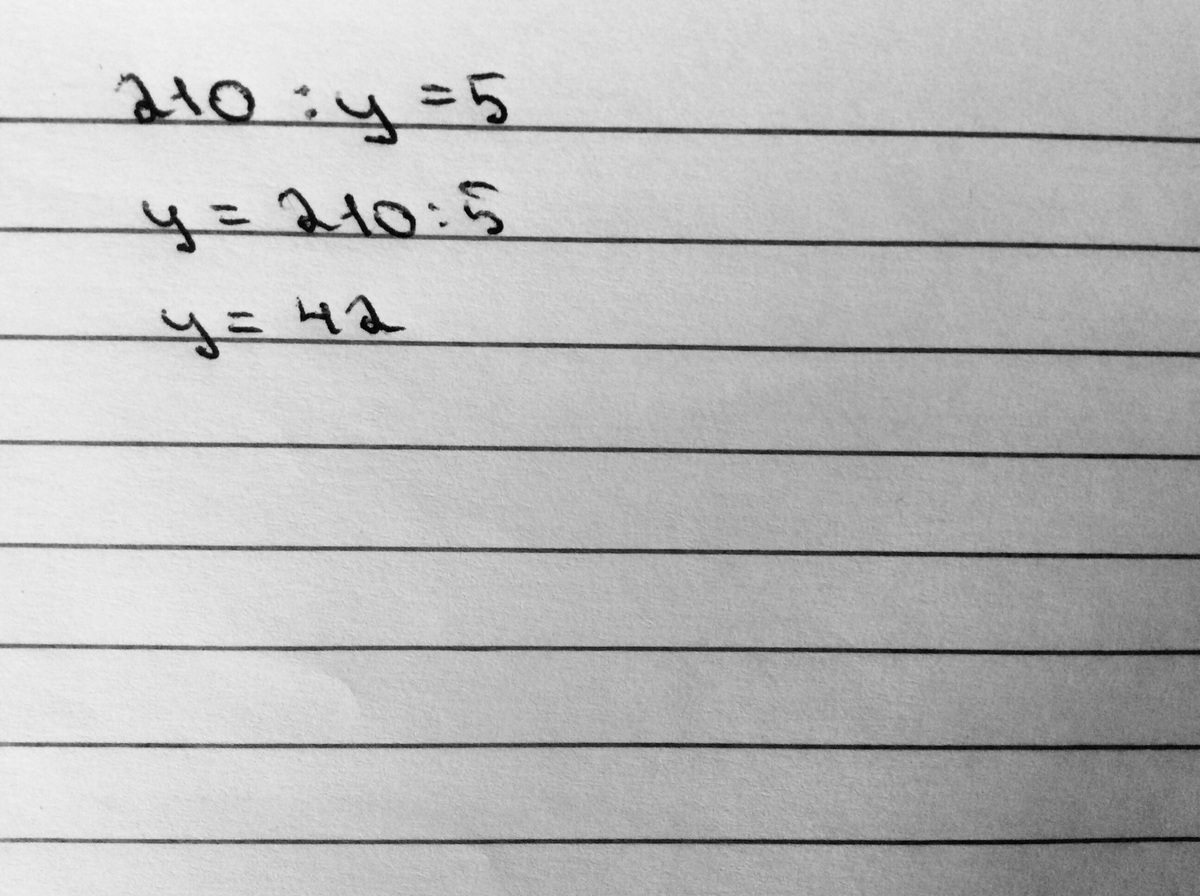 210 : y = 5
y = 210 : 5
y = 42